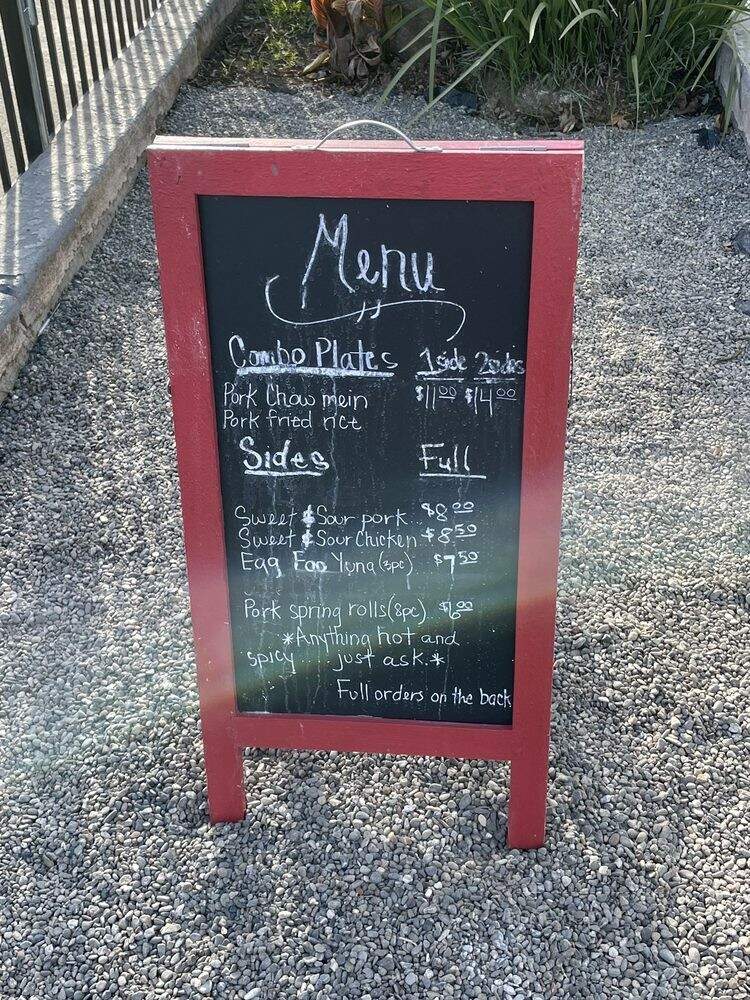 Menu
Combo Plates 1 side 2 sides
Pork Chow mein $11.00 $14.00
Pork fried rice
Sides Full
Sweet & Sour pork.. $8.00
Sweet & Sour Chicken $8.50
Egg Foo Yung (3pc) $7.50
Pork spring rolls (8pc) $6.00
*Anything hot and
spicy... just ask.*
Full orders on the back